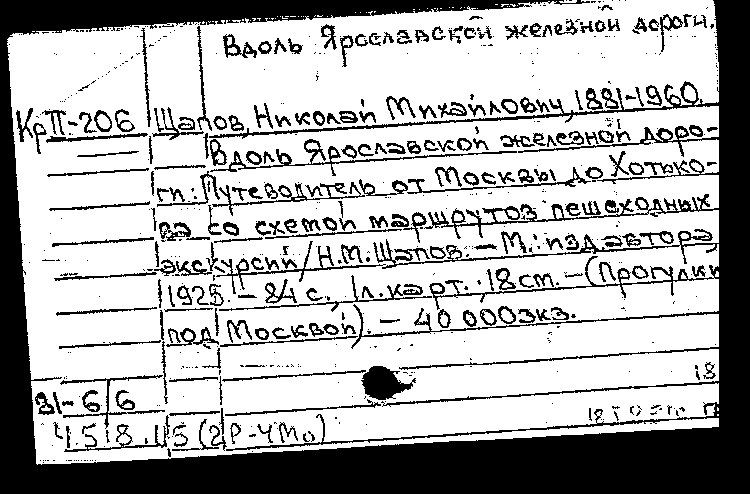 Вдоль Ярославской железной дороги.
КрП-206 Щапов, Николай Михайлович, 1881-1960.
Вдоль Ярославской железной доро-
ги: Путеводитель от Москвы до Хотько-
ва со схемой маршрутов пешеходных
экскурсий/Н.М.Щапов. — М.: изд.автора,
1925. — 84 с., 1л.карт.; 18см. — (Прогулки
под Москвой). — 40 000экз.
18
31-6/6